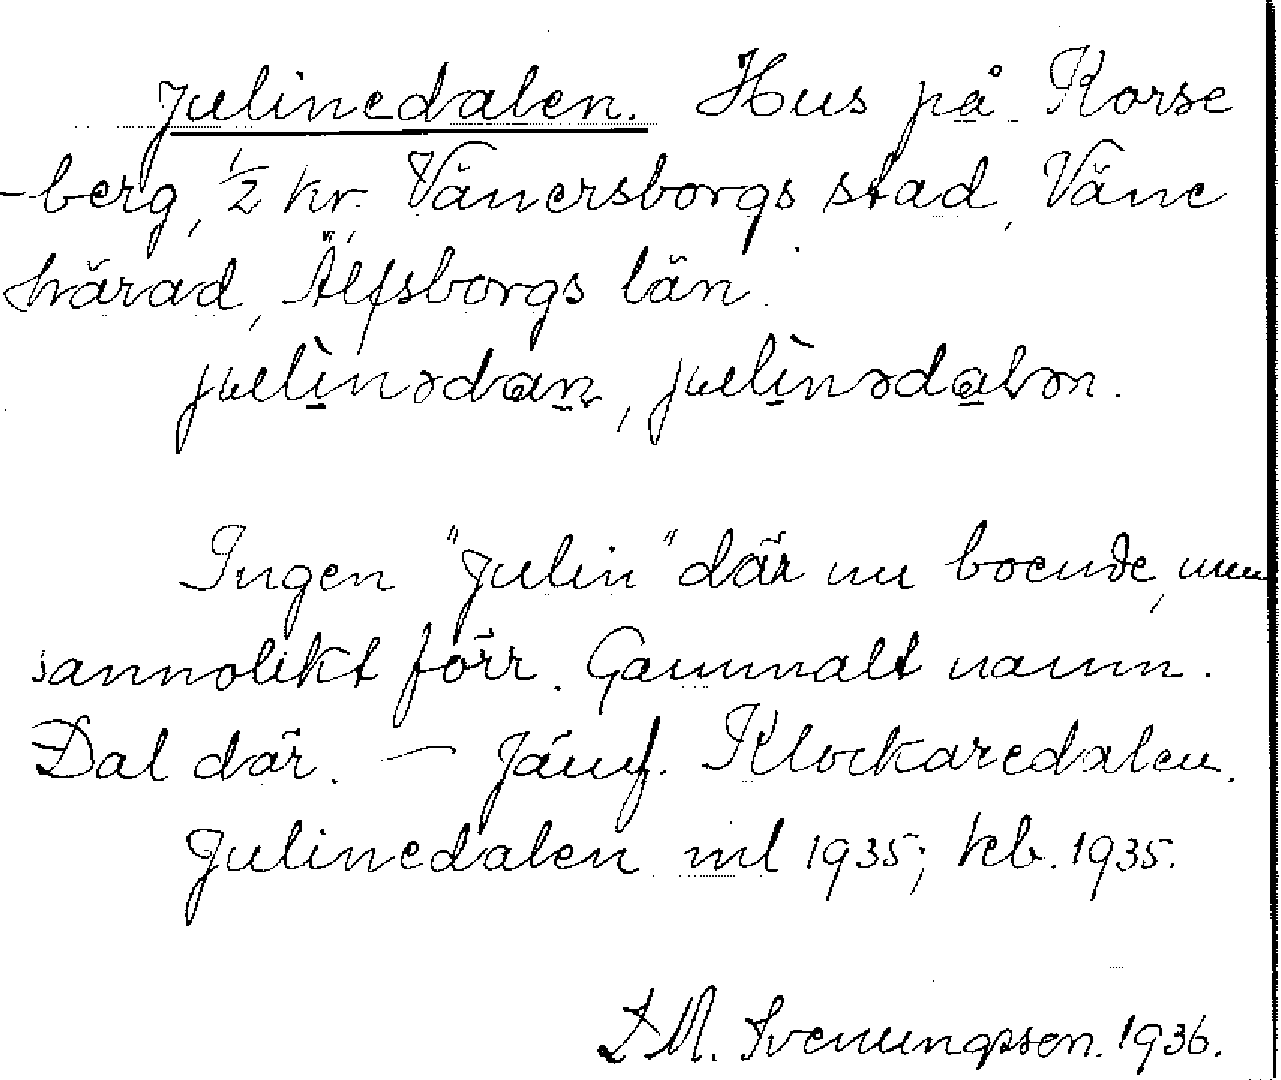 Julinedalen. Hus på Korse
-berg, 1/2 kr. Vänersborgs stad, Väne
härad, Älfsborgs län.
julìnədan, julìnədalən.
Ingen "Julin" där nu boende, men
sannolikt förr. Gammalt namn.
Dal där. – Jämf. Klockaredalen.
Julinedalen ml 1935; kb. 1935.
M. Svenungsson. 1936.